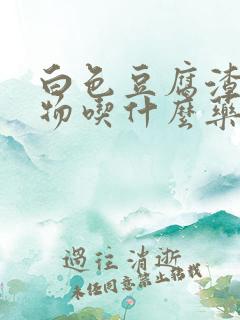 白色豆腐渣
物喫什麽藥
過往消逝
未经同意禁止转载